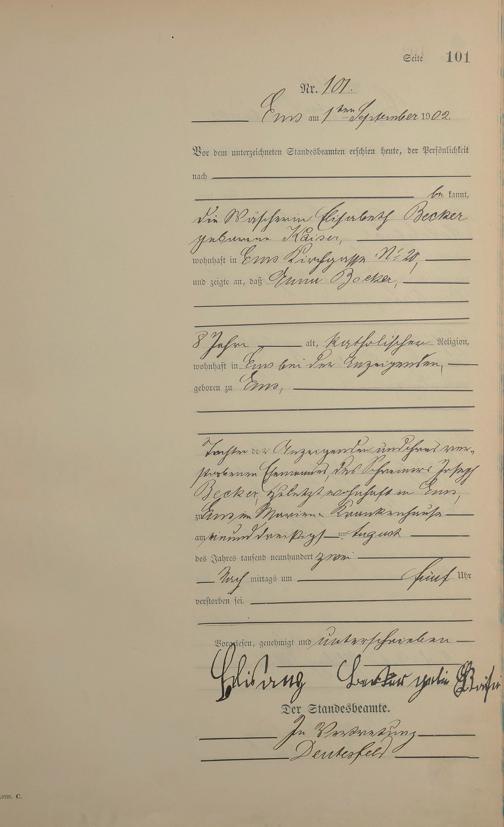 Seite 101
Nr. 101.
Ems am 1ten September 1902.
Vor dem unterzeichneten Standesbeamten erschien heute, der Persönlichkeit
nach
be kannt,
die Wäscherin Elisabeth Becker
geborene Kaiser,
wohnhaft in Ems Kirchgasse No 20,
und zeigte an, daß Anna Becker,
8 Jahre alt, katholischer Religion,
wohnhaft in Ems bei der Anzeigenden,
geboren zu Ems,
Tochter der Anzeigenden und ihres ver-
storbenen Ehemannes, des Schreiners Joseph
Becker, zuletzt wohnhaft in Ems,
zu Ems im Marien Krankenhause
am neunundzwanzigsten August
des Jahres tausend neunhundert zwei
Nach mittags um fünf Uhr
verstorben sei.
Vorgelesen, genehmigt und unterschrieben
Becker
Der Standesbeamte.
In Vertretung